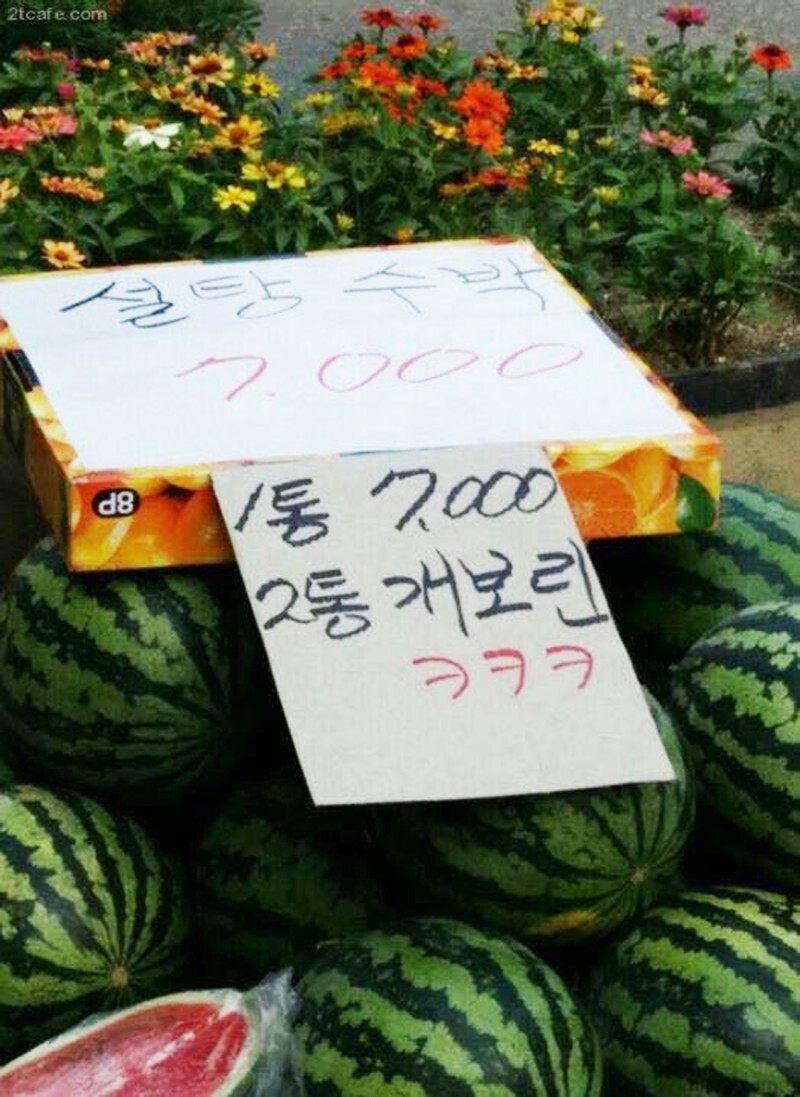 2tcafe.com
설탕 수박
7.000
8P
1통 7.000
2통 개보린
ㅋㅋㅋ